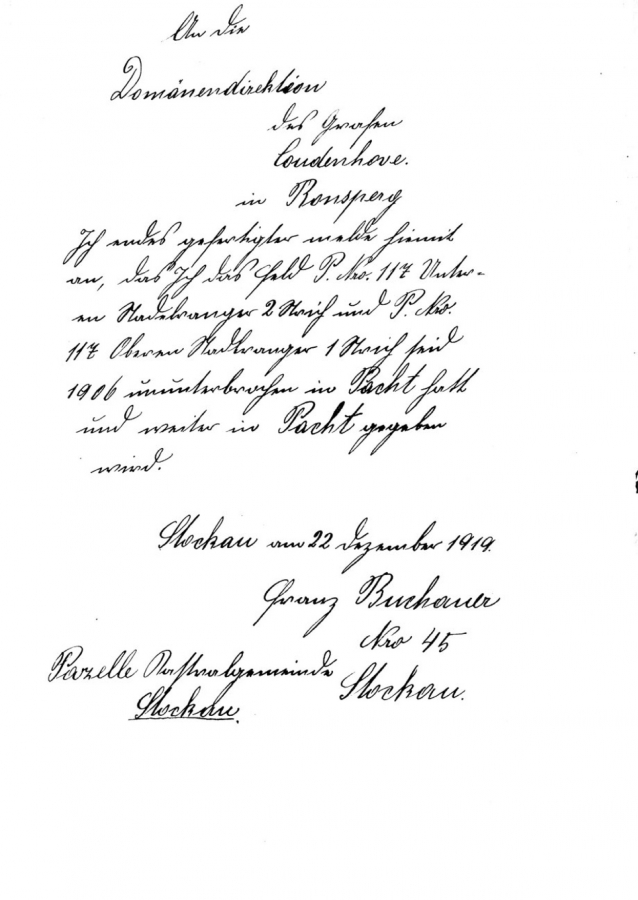 An die
Domänendirektion
des Grafen
Coudenhove.
in Ronsperg
Ich endes gefertigter melde hiemit
an, das Ich das Feld P. Nro. 117 Unter-
en Stadelranger 2 Strich und P. Nro.
117 Oberen Stadlranger 1 Strich seid
1906 ununterbrochen in Pacht hatt
und weiter in Pacht gegeben
wird.
Stockau am 22 Dezember 1919.
Franz Buchauer
Nro 45
Stockau.
Parzelle Kastralgemeinde
Stockau.